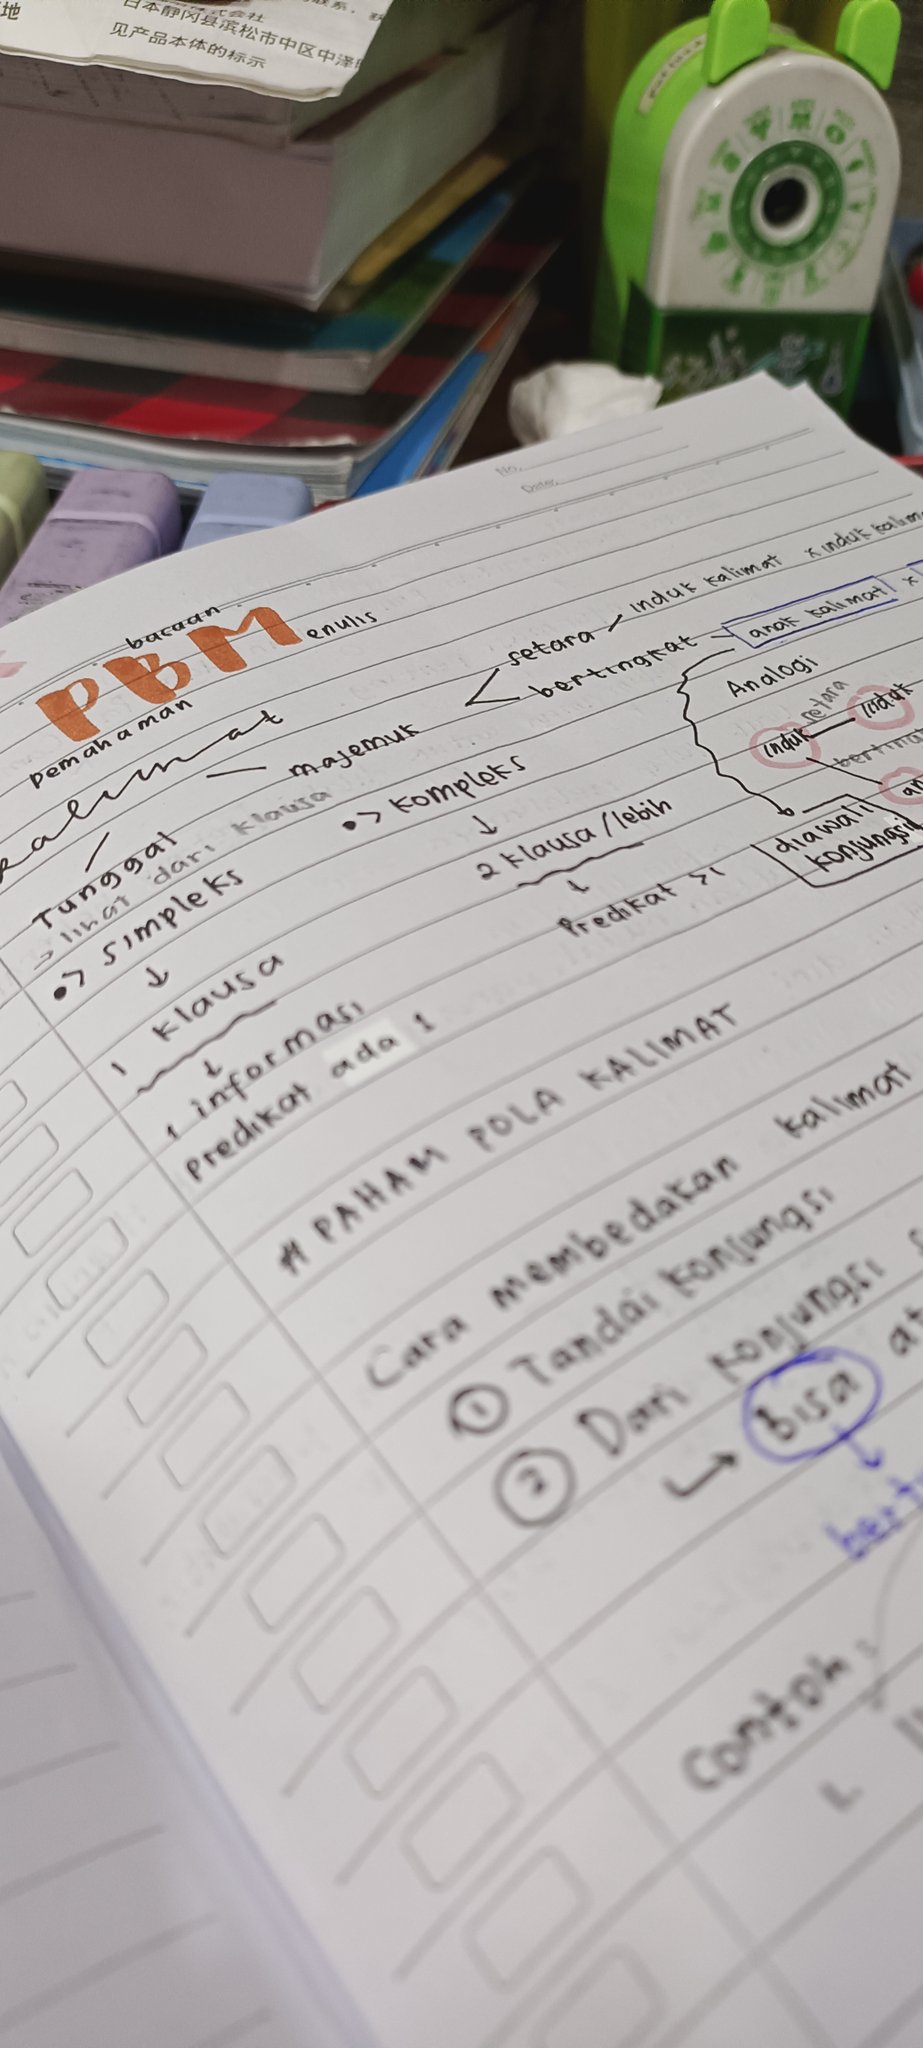 地
日本静冈县滨松市中区中泽
见产品本体的标示
No.
Date:
bacaan
PBM enulis
pemahaman
kalimat
majemuk
setara / induk kalimat x induk kalim
bertingkat - anak kalimat x
Analogi
setara
induk induk
bertin
an
diawali
konjungsi
Tunggal
→ lihat dari klausa
•> simpleks
↓
1 klausa
↓
1 informasi
predikat ada 1
•> kompleks
↓
2 klausa/lebih
↓
Predikat >1
# PAHAM POLA KALIMAT
Cara membedakan kalimat
① Tandai konjungsi
② Dari konjungsi
↪ bisa at
↓
bert
Contoh: